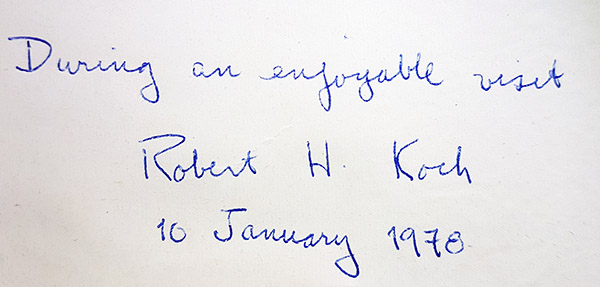 During an enjoyable visit
Robert H. Koch
10 January 1978